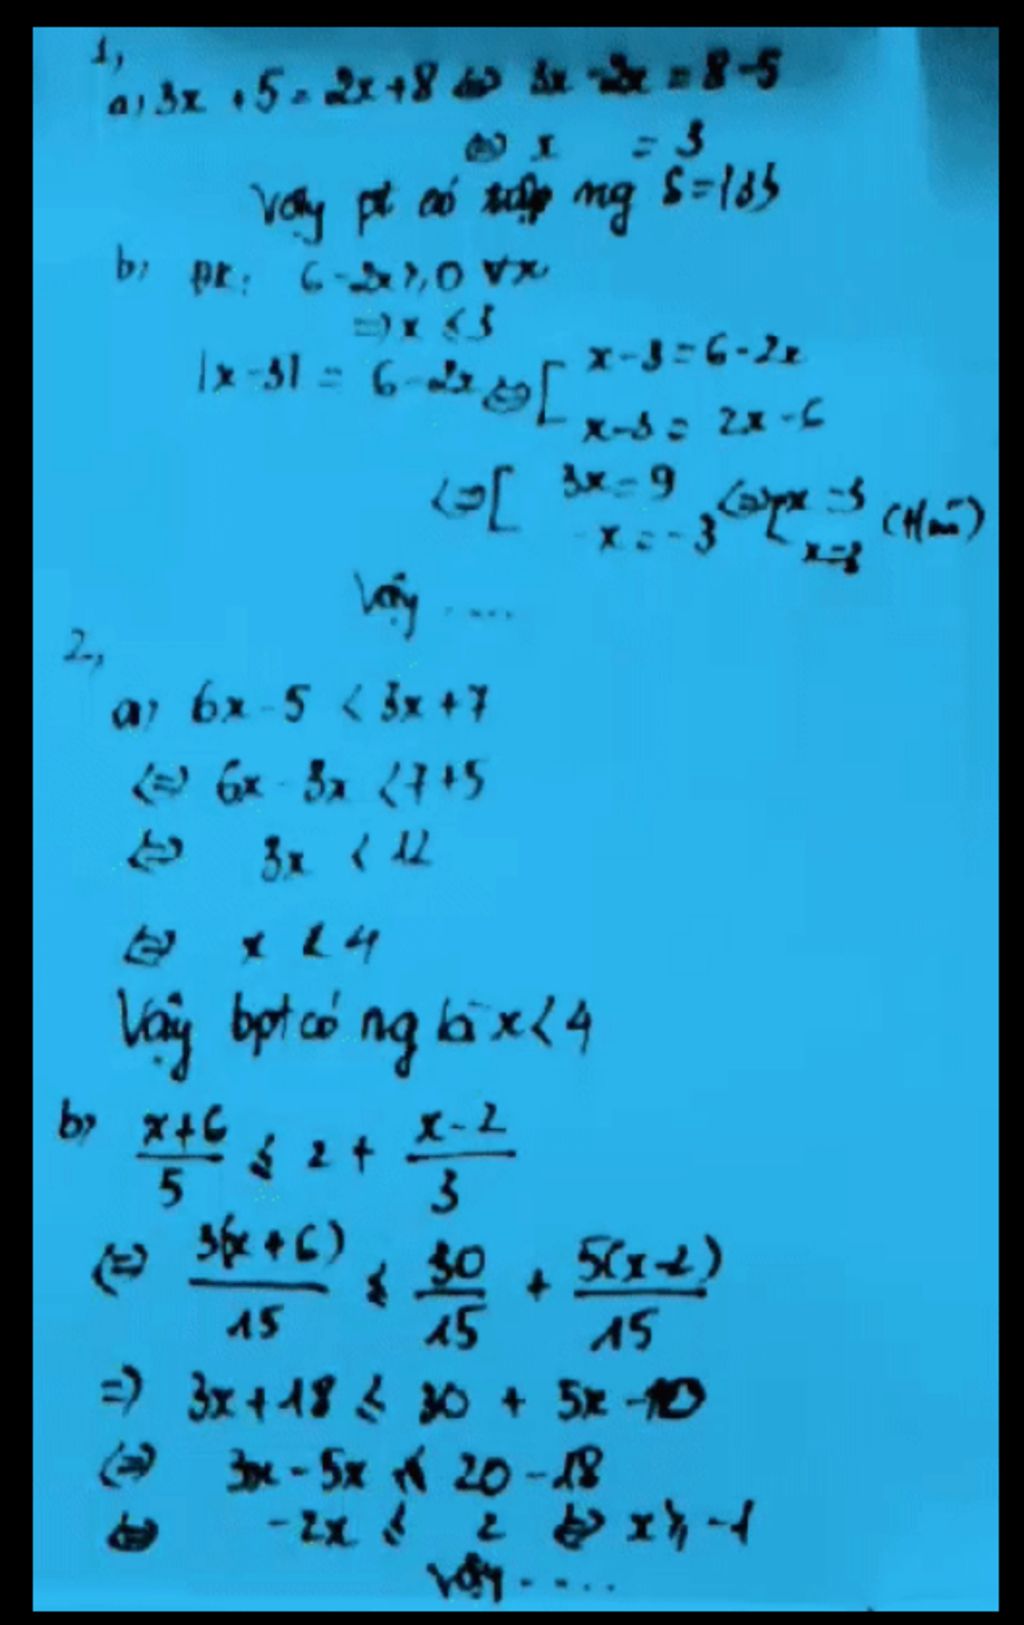 1,
a, 3x + 5 = 2x + 8 <=> 3x - 2x = 8 - 5
<=> x = 3
Vậy pt có tập ng S = {3}
b, ĐK: 6 - 2x ≥ 0 ∀x
=> x ≤ 3
|x - 3| = 6 - 2x <=> [ x - 3 = 6 - 2x
x - 3 = 2x - 6
<=> [ 3x = 9 <=> [ x = 3 (tmãn)
-x = -3 x = 3
Vậy ....
2,
a, 6x - 5 < 3x + 7
<=> 6x - 3x < 7 + 5
<=> 3x < 12
<=> x < 4
Vậy bpt có ng là x < 4
b, (x+6)/5 ≤ 2 + (x-2)/3
<=> 3(x+6)/15 ≤ 30/15 + 5(x-2)/15
=> 3x + 18 ≤ 30 + 5x - 10
<=> 3x - 5x ≤ 20 - 18
<=> -2x ≤ 2 <=> x ≥ -1
Vậy ....